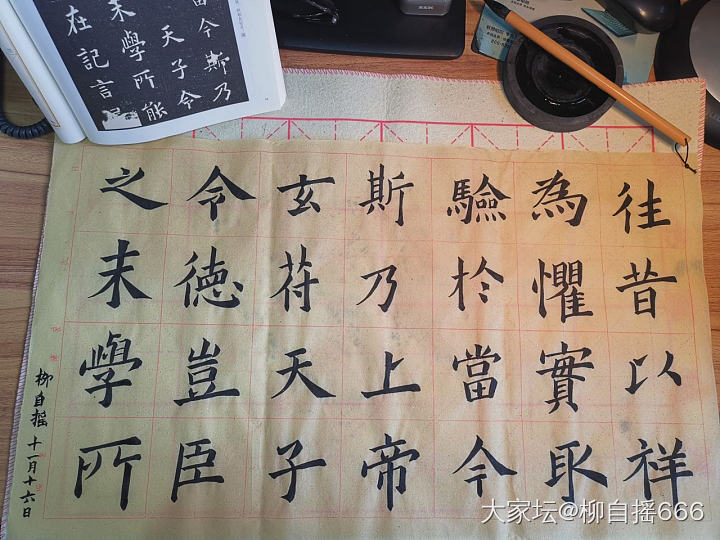 當今斯乃
天子令
末學所能
在記言
往昔以祥
為懼實取
驗於當今
斯乃上帝
玄苻天子
令德豈臣
之末學所
柳自摇 十一月十六日
大家坛@柳自摇666